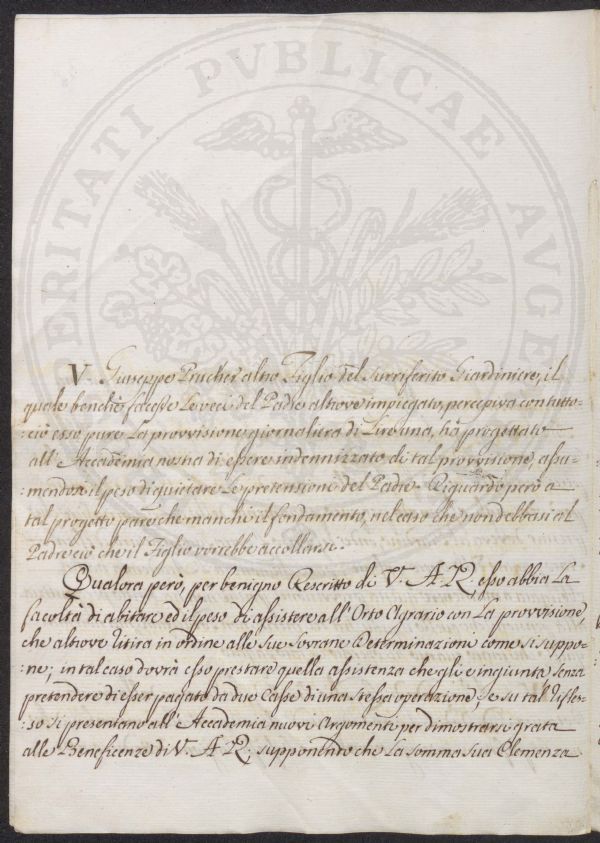 VBERTATI PVBLICAE AVGE
V. Giuseppe Prucher altro Figlio del surriferito Giardiniere, il
quale benchè facesse Le veci del Padre altrove impiegato, percepiva con tutto-
:ciò esso pure La provvisione giornaliera di Lire una, hà progettato
all' Accademia nostra di essere indennizzato di tal provvisione, assu-
:mendosi il peso di quietare Le pretensione del Padre. Riguardo però a
tal progetto pare che manchi il fondamento, nel caso che non debbasi al
Padre ciò che il Figlio vorrebbe accollarsi.
Qualora però, per benigno Rescritto di V. A. R. esso abbia La
facoltà di abitare ed il peso di assistere all' Orto Agrario con La provvisione,
che altrove ritira in ordine alle Sue Sovrane Determinazioni come si suppo-
:ne; in tal caso dovrà esso prestare quella assistenza che gli è ingiunta senza
pretendere di esser pagato da due Casse di una stessa operazione, e su tal Rifles-
:so si presentano all' Accademia nuovi Argomenti per dimostrarsi grata
alle Beneficenze di V. A. R.; supponendo che La somma Sua Clemenza